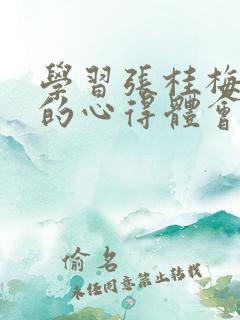 學習張桂梅
的心得體會
偷名
未经同意禁止转载